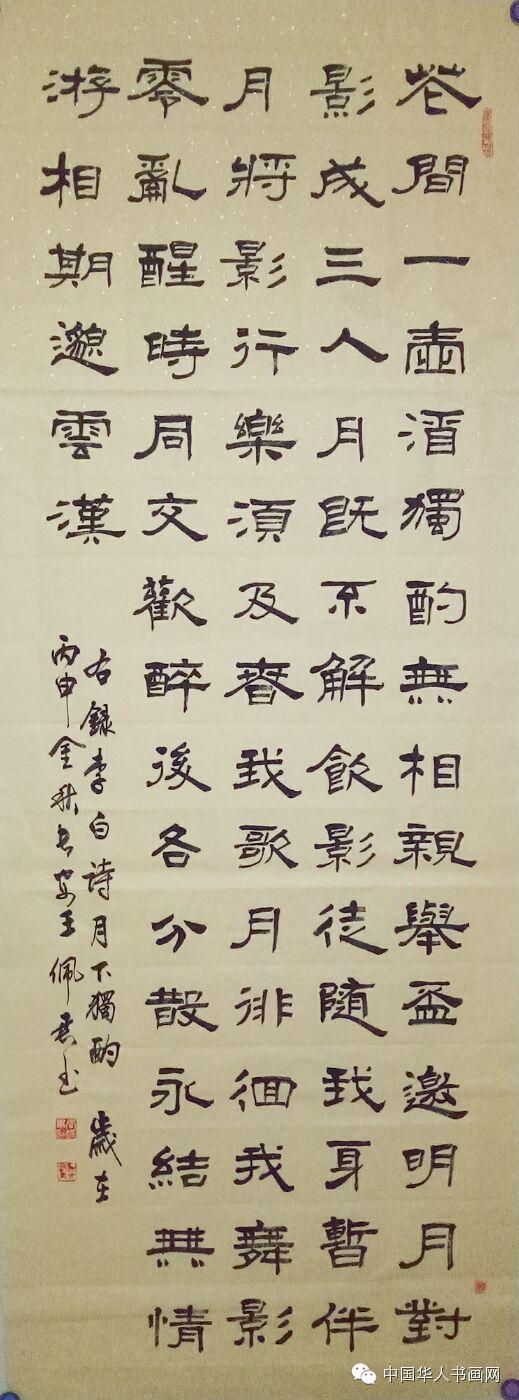 花間一壺酒獨酌無相親舉盃邀明月對
影成三人月既不解飲影徒随我身暫伴
月將影行樂須及春我歌月徘徊我舞影
零亂醒時同交歡醉後各分散永結無情
游相期邈雲漢
右録李白诗月下獨酌 歲在
丙申金秋长安王佩书
中国华人书画网